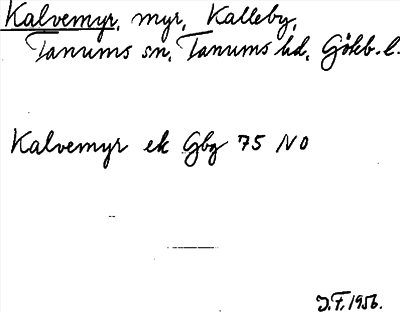 Kalvemyr, myr, Kalleby,
Tanums sn, Tanums hd, Göteb. l.
Kalvemyr ek Gbg 75 NO
J.F. 1956.